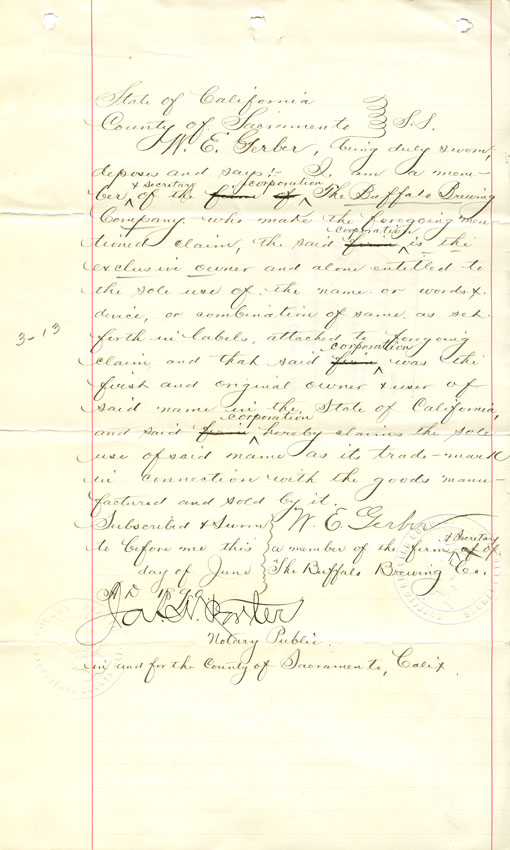 State of California
County of Sacramento } S.S.
W. E. Gerber, being duly sworn,
deposes and says:- I am a mem-
& Secretary corporation
ber of the firm of The Buffalo Brewing
Company who make the foregoing men-
corporation
tioned claim, the said firm is the
exclusive owner and alone entitled to
the sole use of the name or words &
device, or combination of same as set
3-13
forth in labels, attached to foregoing
corporation
claim and that said firm was the
first and original owner & user of
said name in the State of California,
corporation
and said firm hereby claims the sole
use of said name as its trade-mark
in connection with the goods manu-
factured and sold by it.
Subscribed & Sworn W. E. Gerber
& Secretary
to before me this a member of the firm of of
day of June The Buffalo Brewing Co.
A D 1899
Porter
Notary Public
in and for the County of Sacramento, Calif.